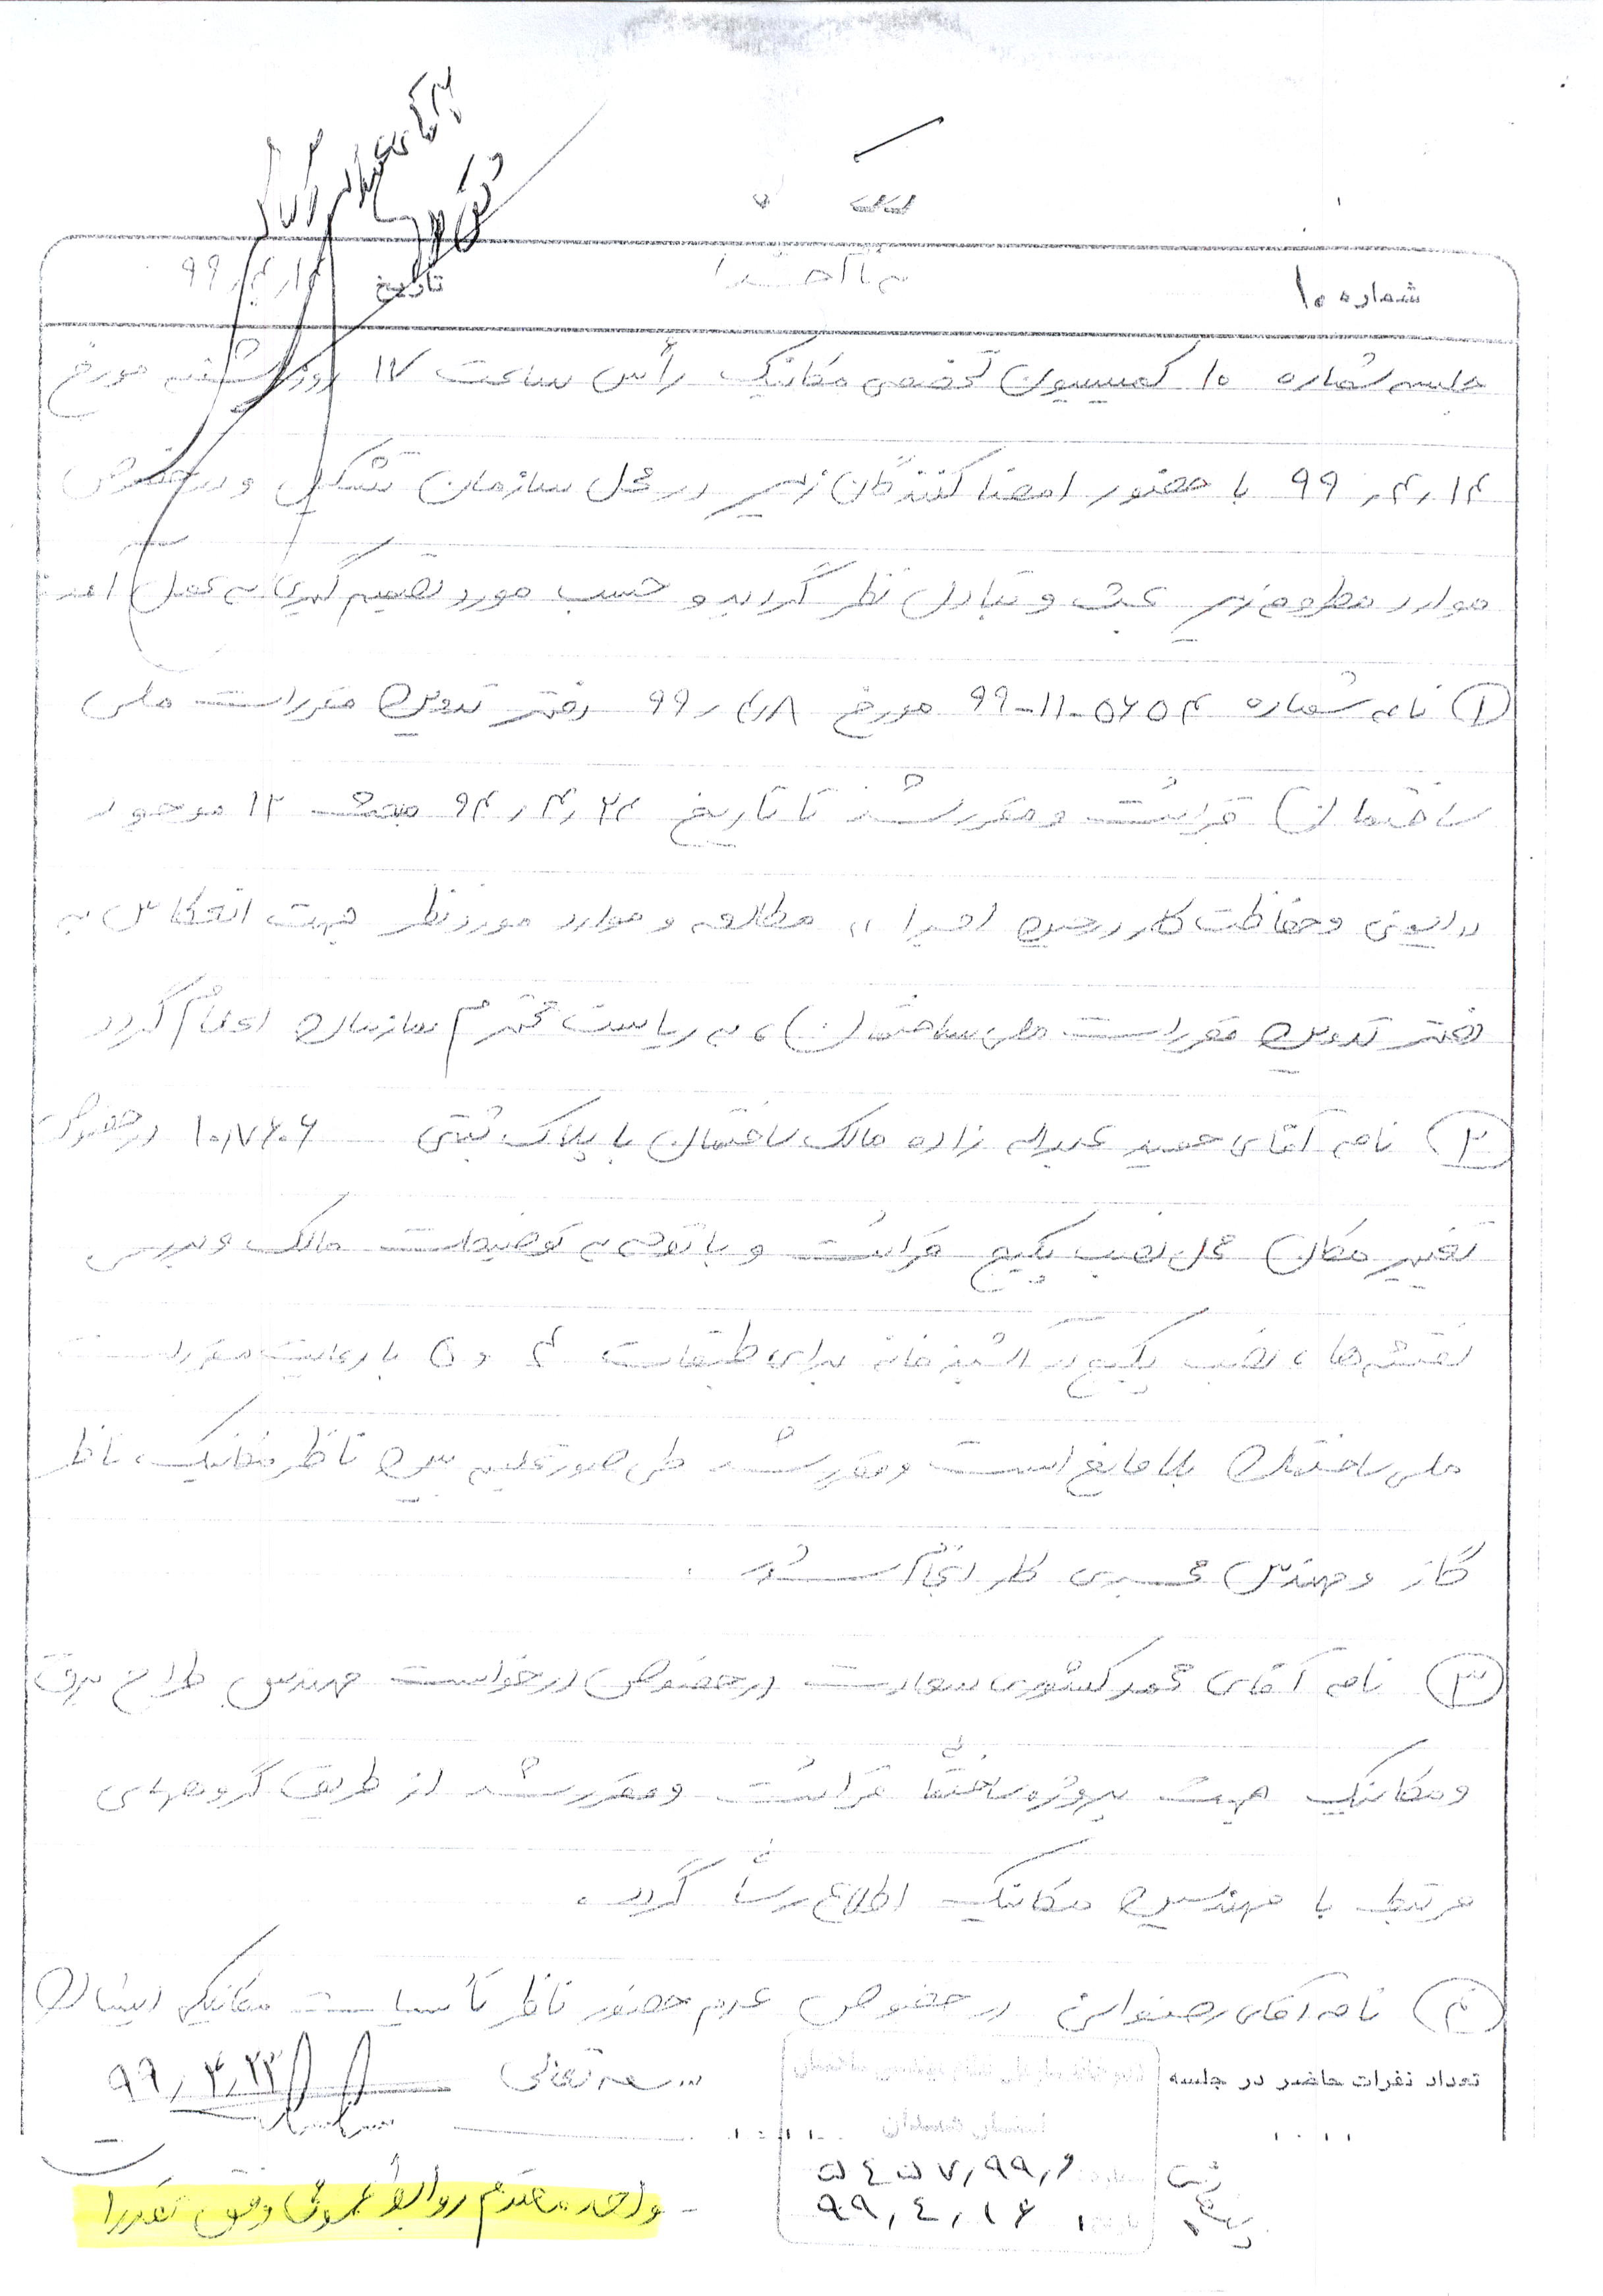 شماره ۱۰
بنام خدا
تاریخ ۹۹٫۴٫۱۴
جلسه شماره ۱۰ کمیسیون تخصصی مکانیک رأس ساعت ۱۷ روز شنبه مورخ
۹۹٫۴٫۱۴ با حضور امضا کنندگان زیر در محل سازمان تشکیل و در خصوص
موارد مطروحه زیر بحث و تبادل نظر گردید و حسب مورد تصمیم گیری به عمل آمد:
۱ نامه شماره ۹۹-۱۱-۵۶۵۴ مورخ ۹۹٫۴٫۸ دفتر تدوین مقررات ملی
ساختمان قرائت و مقرر شد تا تاریخ ۹۴٫۴٫۲۴ مبحث ۱۲ موجود
"ایمنی و حفاظت کار در حین اجرا"، مطالعه و موارد مورد نظر جهت انعکاس به
دفتر تدوین مقررات ملی ساختمان، به ریاست محترم سازمان اعلام گردد
۲ نامه آقای حمید عبداله زاده مالک ساختمان با پلاک ثبتی ۱۰٫۷۶۰۶ در خصوص
تغییر مکان محل نصب پکیج قرائت و با توجه به توضیحات مالک و بررسی
نقشه‌ها، نصب پکیج در آشپزخانه برای طبقات ۴ و ۵ با رعایت مقررات
ملی ساختمان بلامانع است و مقرر شد طی صورتجلسه بین ناظر مکانیک، ناظر
گاز و مهندس مجری کار انجام شود.
۳ نامه آقای محمد کشوری سعادت در خصوص درخواست مهندس طراح برق
و مکانیک جهت پروژه ساختمانی قرائت و مقرر شد از طریق گروههای
مرتبط با مهندسین مکانیک اطلاع رسانی گردد.
۴ نامه آقای رضوانی در خصوص عدم حضور ناظر تأسیسات مکانیکی ایشان
تعداد نفرات حاضر در جلسه
بسمه تعالی
۹۹٫۴٫۲۳
ثبت
۹۹٫۴٫۱۶
- واحد محترم روابط عمومی وفق مقررات